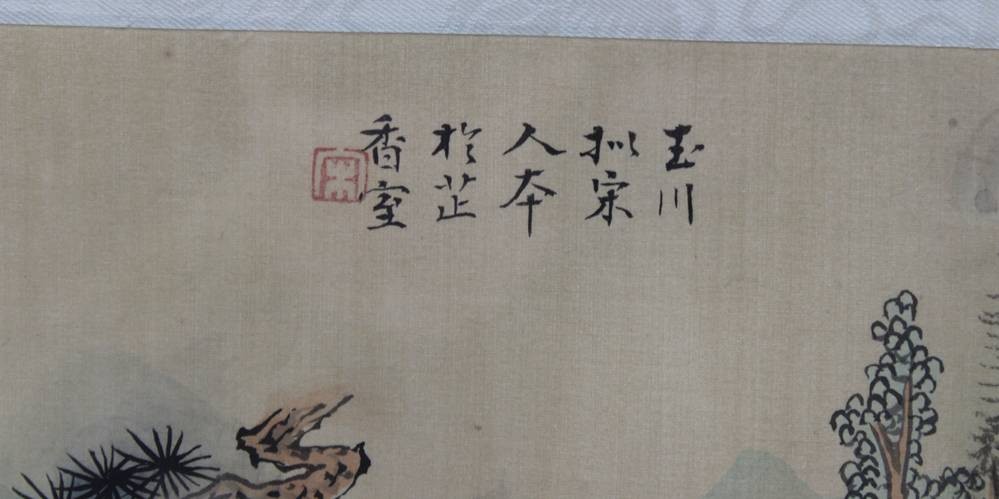 玉川
拟宋
人本
於芷
香室